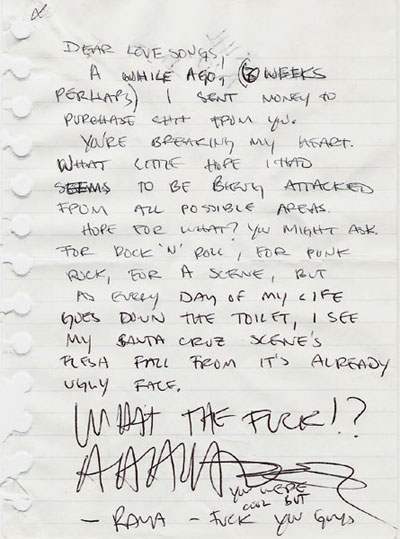 DEAR LOVE SONGS,
A WHILE AGO, (3 WEEKS
PERHAPS) I SENT MONEY TO
PURCHASE SHIT FROM YOU.
YOU'RE BREAKING MY HEART.
WHAT LITTLE HOPE I HAD
SEEMS TO BE BEING ATTACKED
FROM ALL POSSIBLE AREAS.
HOPE FOR WHAT? YOU MIGHT ASK.
FOR ROCK 'N' ROLL, FOR PUNK
ROCK, FOR A SCENE, BUT
AS EVERY DAY OF MY LIFE
GOES DOWN THE TOILET, I SEE
MY SANTA CRUZ SCENE'S
FLESH FALL FROM IT'S ALREADY
UGLY FACE.
WHAT THE FUCK!?
YOU WERE
COOL BUT
— RAMA — FUCK YOU GUYS